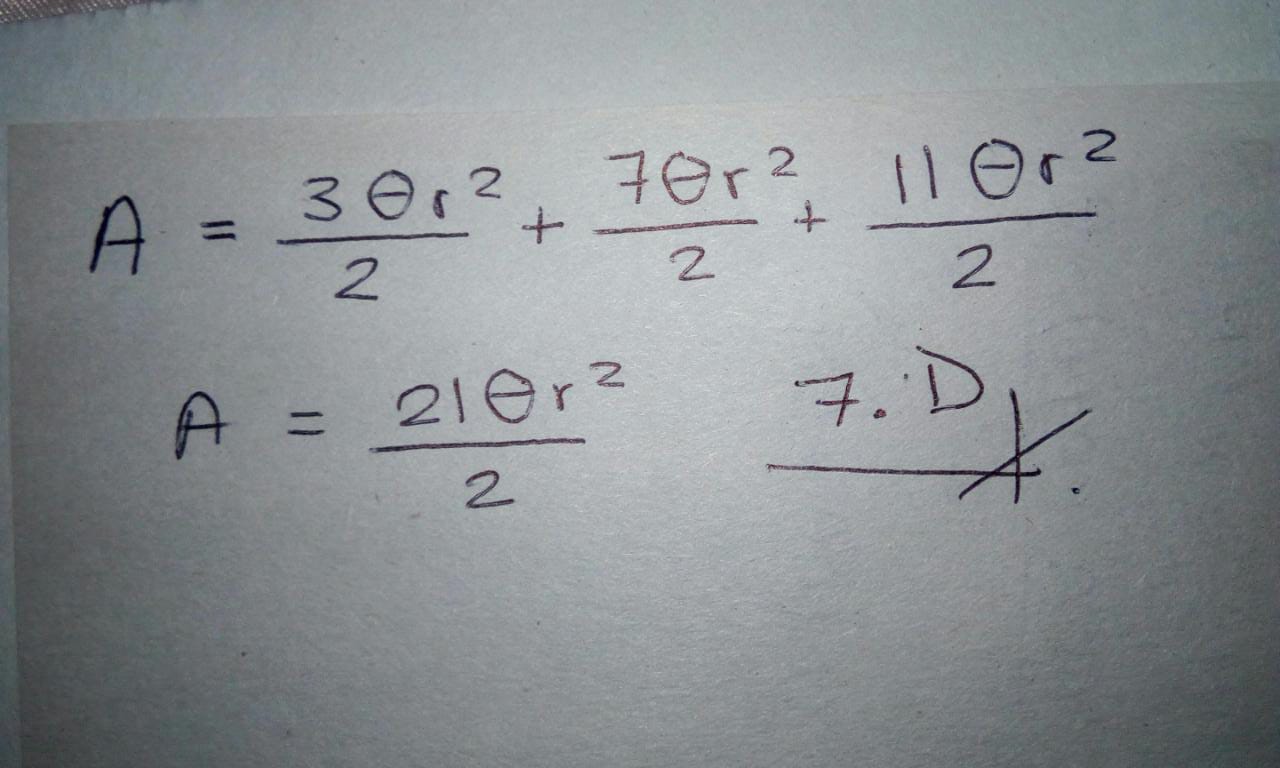 A = 3θr²/2 + 7θr²/2 + 11θr²/2
A = 21θr²/2
7. D